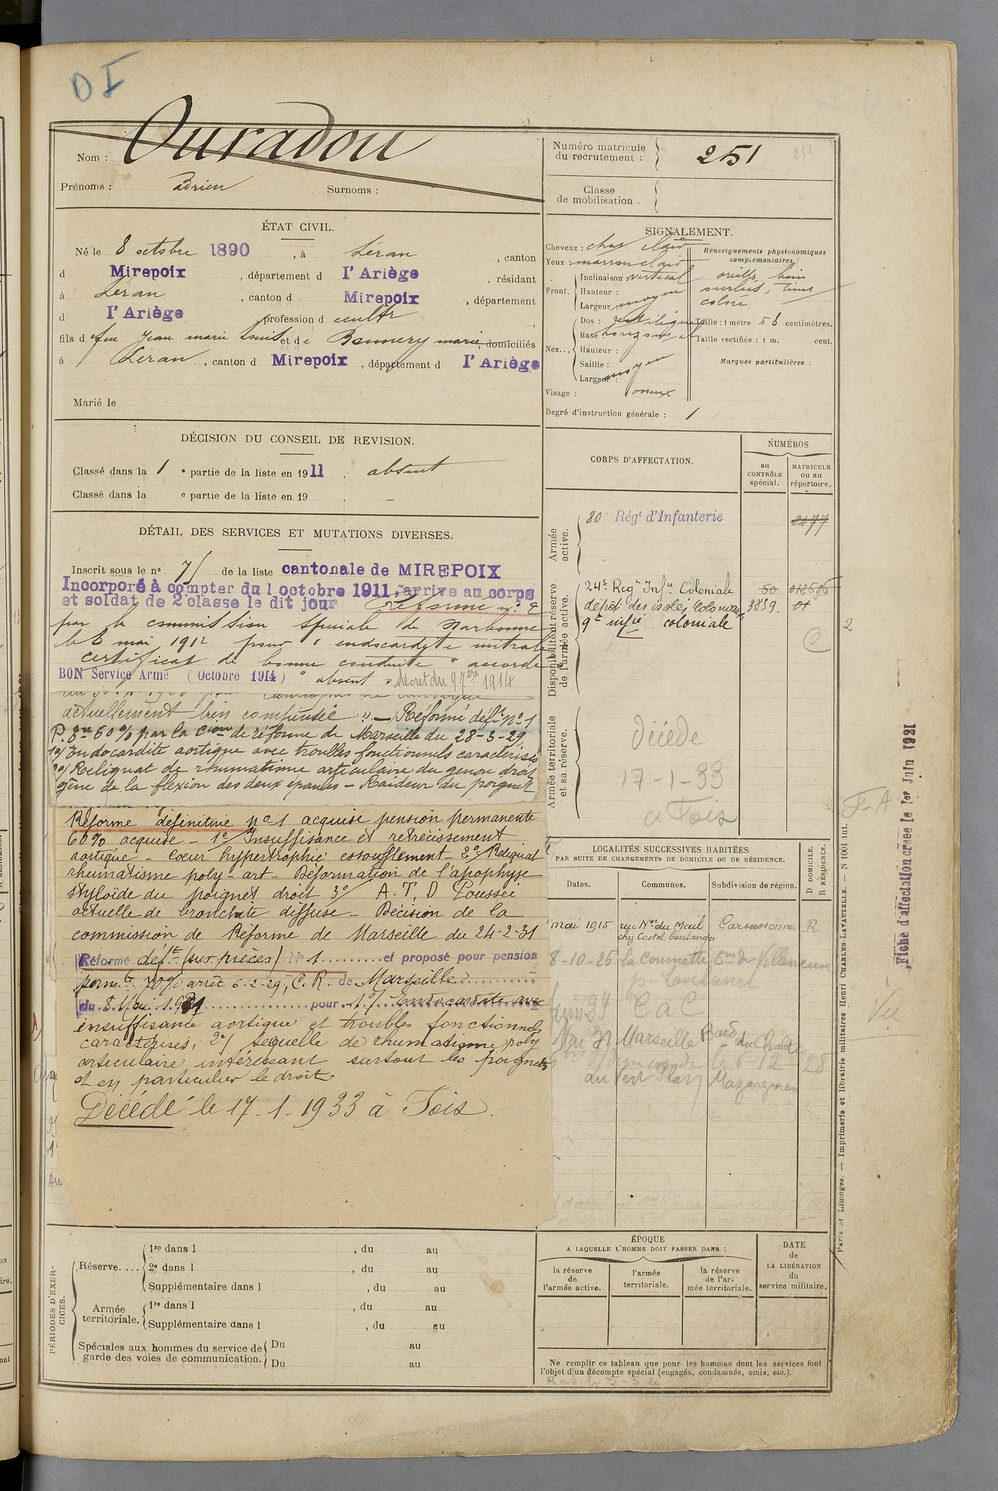 DI
Nom : Ouradou
Prénoms : Adrien Surnoms :
Numéro matricule du recrutement : 251
251
Classe de mobilisation.
ÉTAT CIVIL.
Né le 8 octobre 1890, à Léran, canton
d Mirepoix, département d l'Ariège, résidant
à Léran, canton d Mirepoix, département
d l'Ariège profession de cultr
fils de feu Jean marie Louis et de marie, domiciliés
à Léran, canton d Mirepoix, département d l'Ariège
Marié le
SIGNALEMENT.
Cheveux : chat clair
Yeux marron clair
Front. Inclinaison vertical
Hauteur :
Largeur moyen
Nez... Dos : rectiligne
Base :
Hauteur :
Saillie : moyen
Largeur :
Visage :
Renseignements physionomiques complémentaires :
coloré
Taille : 1 mètre 58 centimètres.
Taille rectifiée : 1 m. cent.
Marques particulières :
Degré d'instruction générale : 1
DÉCISION DU CONSEIL DE REVISION.
Classé dans la 1e partie de la liste en 1911. absent
Classé dans la e partie de la liste en 19 .
DÉTAIL DES SERVICES ET MUTATIONS DIVERSES.
Inscrit sous le n° 75 de la liste cantonale de MIREPOIX
Incorporé à compter du 1 octobre 1911, arrive au corps
et soldat de 2e classe le dit jour Réformé n° 2
par la commission spéciale de Narbonne
le 6 mai 1912 pour "endocardite mitrale"
certificat de bonne conduite "accordé"
BON Service Armé (Octobre 1914) "absent" décret du 9 7bre 1914
actuellement bien compensée" — Réformé déftt n° 1
P. 60% par la Cion de réforme de Marseille du 28-3-29
1°/ Endocardite aortique avec troubles fonctionnels caractérisés
2°/ Reliquat de rhumatisme articulaire du genou droit
gêne de la flexion des deux épaules — Raideur du poignet
Réforme définitive n° 1 acquise pension permanente
60% acquise — 1° Insuffisance et rétrécissement
aortique — Cœur hypertrophié essoufflement — 2°/ Reliquat
rhumatisme poly-art — Déformation de l'apophyse
styloïde du poignet droit 3°/ A.T.D Poussée
actuelle de bronchite diffuse — Décision de la
commission de Réforme de Marseille du 24-2-31
Réformé déftt (sur pièces) N° 1 et proposé pour pension
permte 70% arrêt 6-2-29, C.R. de Marseille
du 8 1931 pour 1°/ Endocardite avec
insuffisance aortique et troubles fonctionnels
caractérisés, 2°/ séquelle de rhumatisme poly
articulaire intéressant surtout les poignets
et en particulier le droit.
Décédé le 17-1-1933 à Foix.
CORPS D'AFFECTATION.
NUMÉROS
au CONTRÔLE spécial.
MATRICULE ou au répertoire.
Armée active.
80e Régt d'Infanterie 2477
Disponibilité et réserve de l'armée active.
24e Regt Infie Coloniale 50
dépôt des isolés Coloniaux 3839
9e infie coloniale
C
2
Armée territoriale et sa réserve.
décédé
17-1-33
à Foix
LOCALITÉS SUCCESSIVES HABITÉES
PAR SUITE DE CHANGEMENTS DE DOMICILE OU DE RÉSIDENCE.
Dates. Communes. Subdivision de région. D DOMICILE. R RÉSIDENCE.
mai 1915 rue Ne du Mail Carcassonne R
8-10-26 la Coumette Cne de Villeneuve
CaC
Marseille
au Vert Plan Mazargues
F A
Vu
Fiche d'affectation créée le 1er Juin 1921
Paris et Limoges. — Imprimerie et librairie militaires Henri CHARLES-LAVAUZELLE. — N 1001 int.
PÉRIODES D'EXERCICES.
Réserve.... 1re dans l , du au
2e dans l , du au
Supplémentaire dans l , du au
Armée territoriale. 1re dans l , du au
Supplémentaire dans l , du au
Spéciales aux hommes du service de garde des voies de communication. Du au
Du au
ÉPOQUE
A LAQUELLE L'HOMME DOIT PASSER DANS :
la réserve de l'armée active.
l'armée territoriale.
la réserve de l'armée territoriale.
DATE de LA LIBÉRATION du service militaire.
Ne remplir ce tableau que pour les hommes dont les services font
l'objet d'un décompte spécial (engagés, condamnés, omis, etc.).